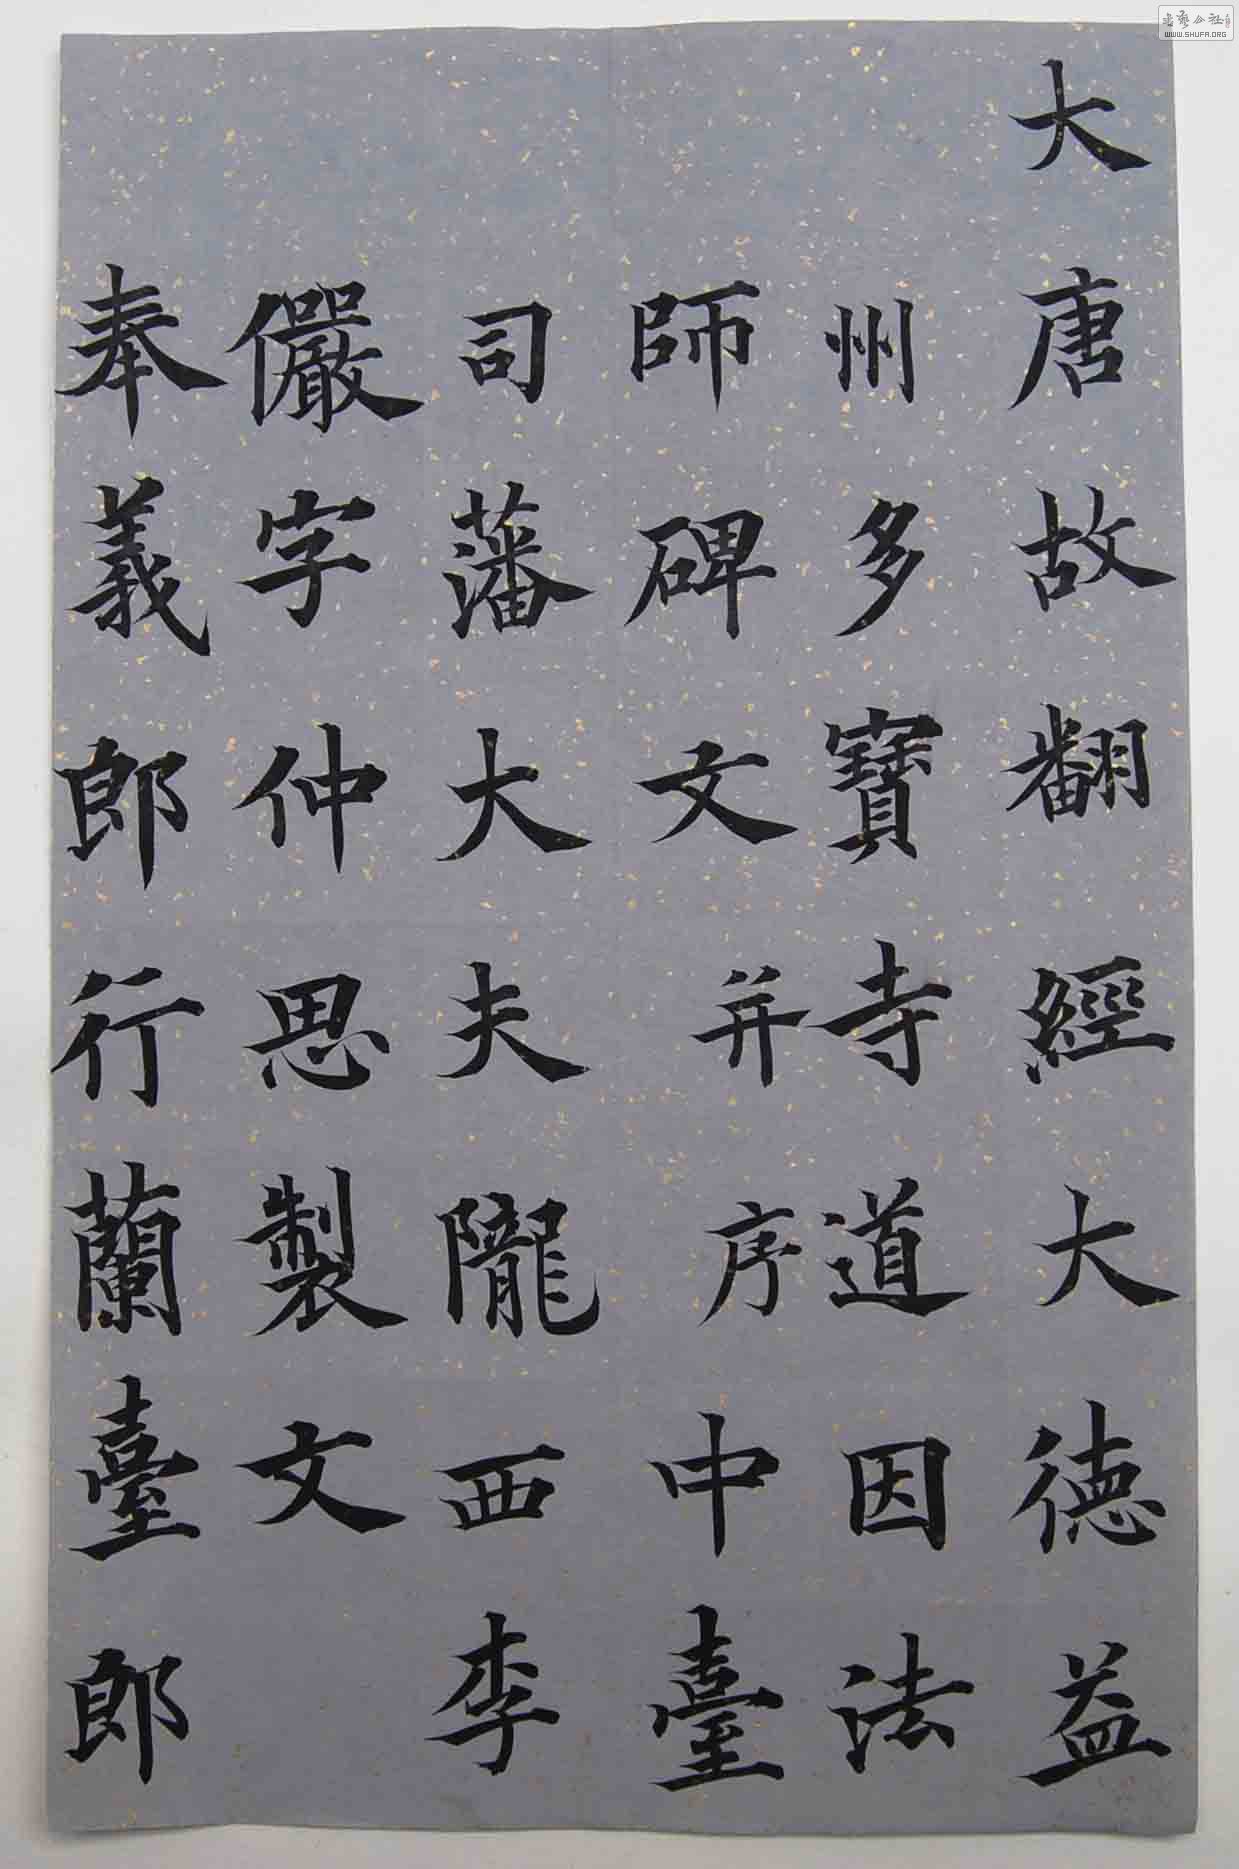 大唐故翻經大德益
州多寶寺道因法
師碑文并序中臺
司藩大夫隴西李
儼字仲思製文
奉義郎行蘭臺郎
WWW.SHUFA.ORG